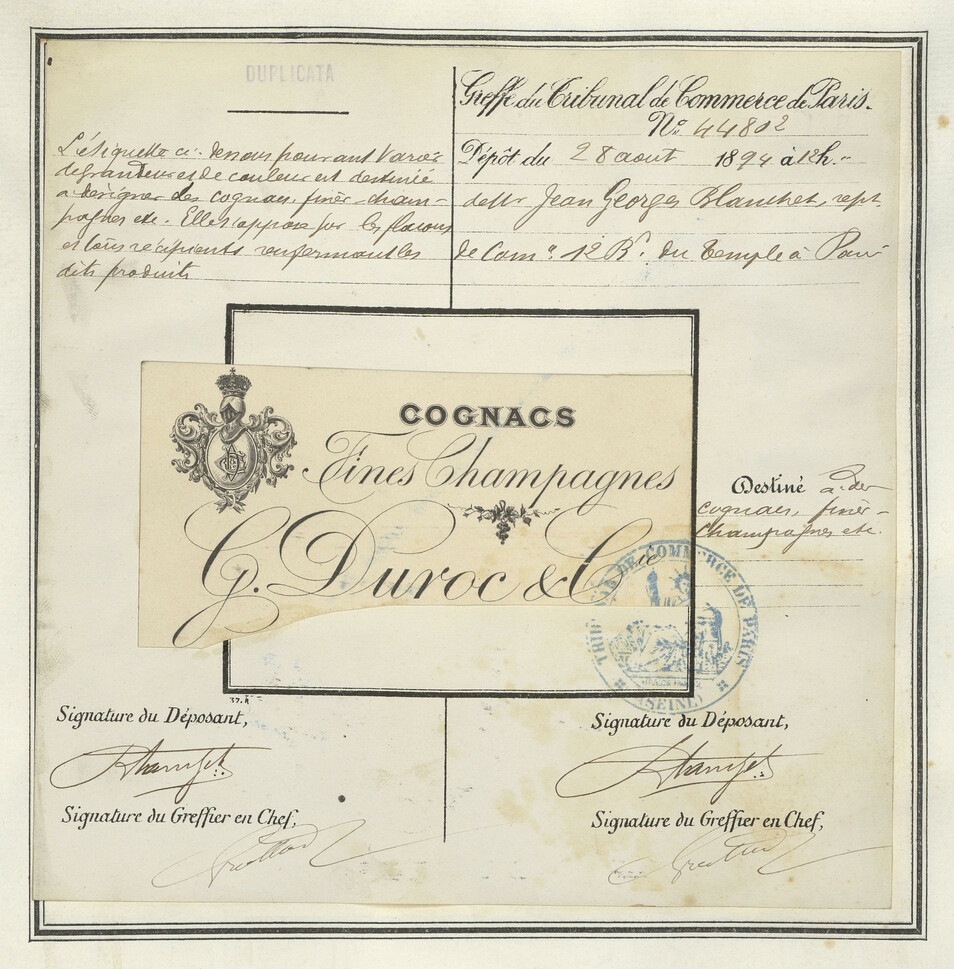 DUPLICATA
L'étiquette ci-dessous pouvant varier
de grandeur et de couleur est destinée
à désigner des cognacs, fines-cham-
pagnes etc. Elle s'appose sur les flacons
et tous récipients renfermant les
dits produits
Greffe du Tribunal de Commerce de Paris.
No. 44802
Dépôt du 28 aout 1894 à 12h. "
de Mr Jean Georges Blanchet, rept.
de Com. 12 Bd. du Temple à Paris
COGNACS
Fines Champagnes
G. Duroc & Cie
Destiné à des
cognacs, fines-
champagnes etc.
TRIBUNAL DE COMMERCE DE PARIS
(SEINE)
37.R
Signature du Déposant,
Signature du Greffier en Chef,
Signature du Déposant,
Signature du Greffier en Chef,